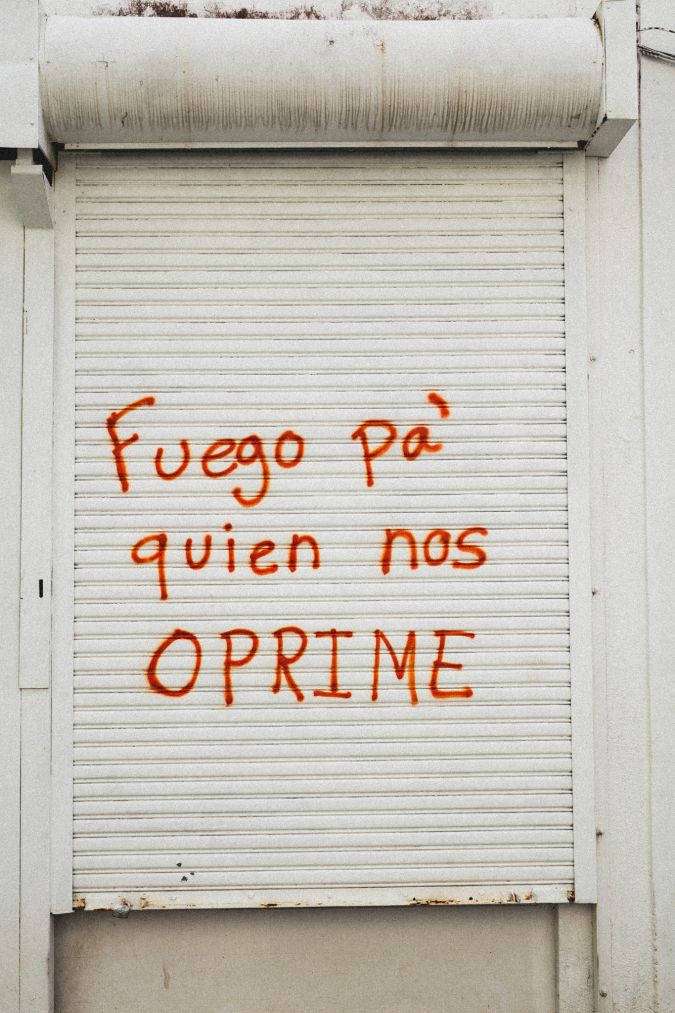 Fuego pa'
quien nos
OPRIME